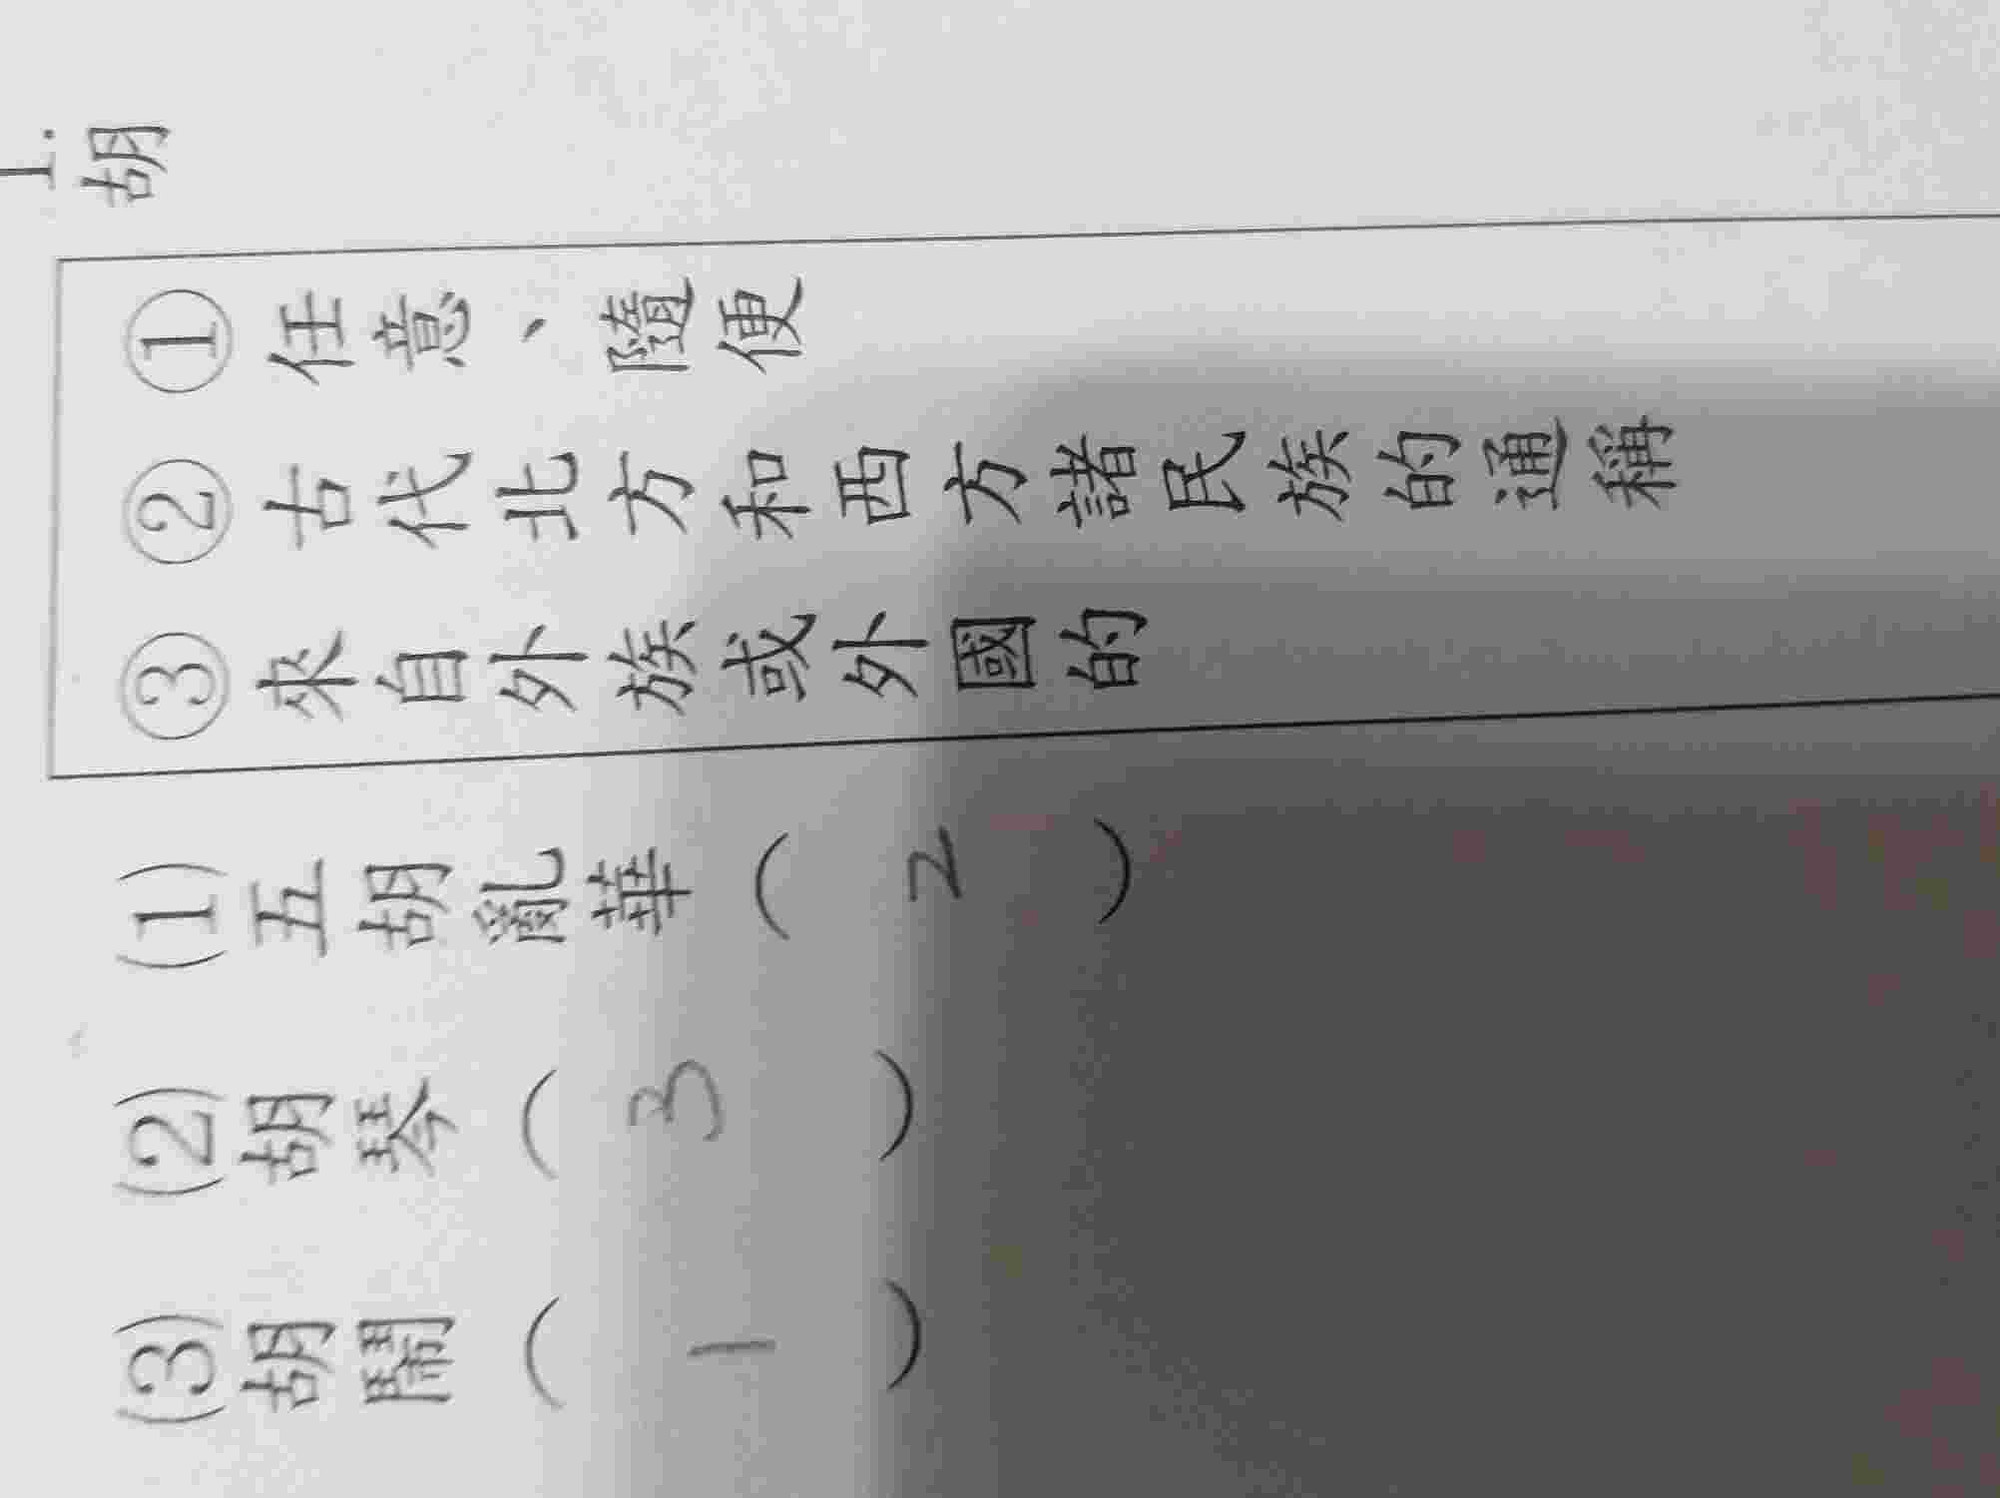 1.
胡
①任意、隨便
②古代北方和西方諸民族的通稱
③來自外族或外國的
(1)五胡亂華( 2 )
(2)胡琴( 3 )
(3)胡鬧( 1 )